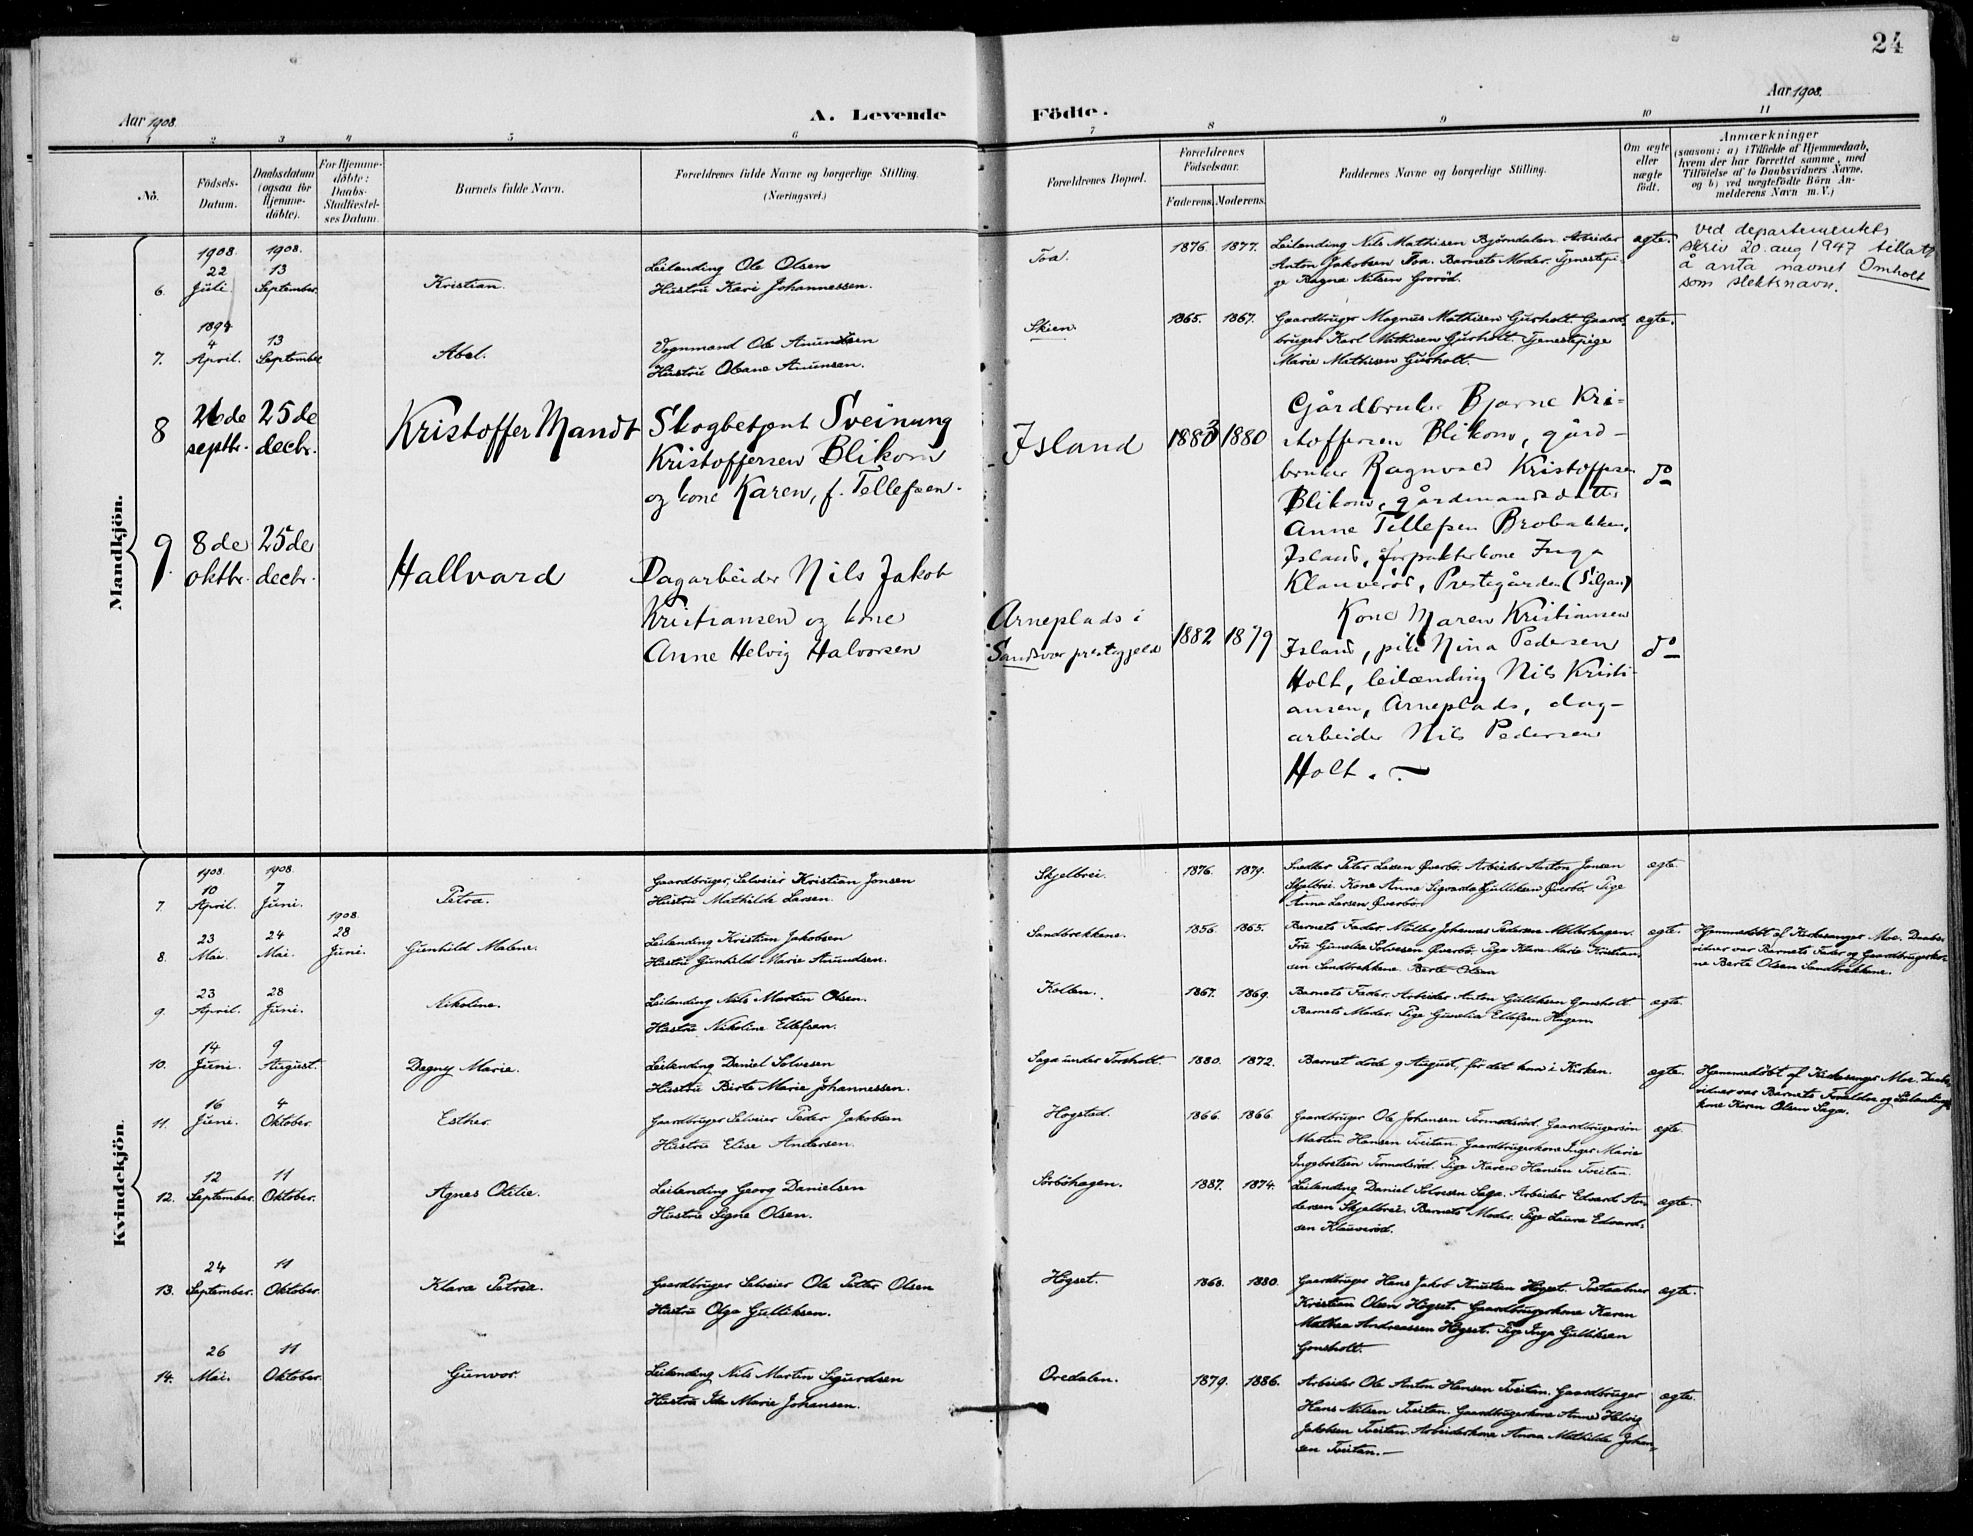 24
Aar 1908.
A. Levende Födte.
Aar 1908.
1 2 3 4 5 6 7 8 9 10 11
No.
Födsels-
Datum.
Daabsdatum
(ogsaa for
Hjemme-
döbte).
For Hjemme-
döbte:
Daabs-
Stadfæstel-
ses Datum.
Barnets fulde Navn.
Forældrenes fulde Navne og borgerlige Stilling.
(Næringsvei.)
Forældrenes Bopæl.
Forældrenes
Födselsaar.
Faderens. Moderens.
Faddernes Navne og borgerlige Stilling.
Om ægte
eller
uægte
födt.
Anmærkninger
(saasom: a) i Tilfælde af Hjemmedaab,
hvem der har forrettet samme, med
Tilföielse af to Daabsvidners Navne,
og b) ved uægtefödte Börn An-
melderens Navn m. V.)
Mandkjön.
6.
1908
22
Juli
1908.
13
September.
Kristian.
Leilending Ole Olsen
Hustru Kari Johannessen.
Tva.
1876. 1877.
Leilending Nils Mathisen Bjørndalen. Arbeider
Anton Jakobsen Tva. Barnets Moder. Tjenestepi-
ge Ragna Nilsen Grorød.
ægte.
ved departementets
skriv 20. aug 1947 tillatt
å anta navnet Omholt
som slektsnavn.
7.
1894
4
April.
13
September
Abel.
Vognmand Ole Amundsen
Hustru Obane Amunsen.
Skien.
1865. 1867.
Gaardbruger Magnus Mathisen Gusholt. Gaard-
bruger Karl Mathisen Gusholt. Tjenestepige
Marie Mathisen Gusholt.
ægte.
8
26de
septbr.
25de
decbr.
Kristoffer Mandt
Skogbetjent Sveinung
Kristoffersen Blikom
og kone Karen, f. Tellefsen.
Island
1883 1880
Gårdbruker Bjarne Kri-
stoffersen Blikom, gård-
bruker Ragnvald Kristoffersen
Blikom, gårdmandsdatter
Anne Tellefsen Brobakken,
Island, forpakterkone Inga
Klauverød, Prestegården (Siljan)
do
9.
8de
oktbr.
25de
decbr.
Hallvard
Dagarbeider Nils Jakob
Kristiansen og kone
Anne Helvig Halvorsen
Arneplads i
Sandsvær prestegjeld
1882 1879
Kone Maren Kristiansen
Island, pike Nina Pedersen
Holt, leilænding Nils Kristi-
ansen, Arneplads, dag-
arbeider Nils Pedersen
Holt.
do
Kvindekjön.
7.
1908.
10
April.
1908.
7
Juni.
Petra.
Gaardbruger, Selveier Kristian Jonsen
Hustru Mathilde Larsen.
Skjelbrei.
1876. 1879.
Snedker Peter Larsen Øverbø. Arbeider Anton Jonsen
Skjelbrei. Kone Anna Sigvarda Gulliksen Øverbø. Pige
Anna Larsen Øverbø.
ægte
8.
23
Mai.
24
Mai.
1908.
28
Juni.
Gunhild Malene.
Leilending Kristian Jakobsen
Hustru Gunhild Marie Amundsen.
Sandbrekkene.
1856. 1865.
Barnets Fader. Møller Johannes Pedersen Møllehagen.
Fru Gunelie Solvesen Øverbø. Pige Klara Marie Kristian-
sen Sandbrekkene. Berte Olsen
ægte.
Hjemmedøbt af Kirkesanger Moe. Daabs-
vidner var Barnets Fader og Gaardbrugerko-
ne Berte Olsen Sandbrekkene.
9.
23
April.
28
Juni.
Nikoline.
Leilending Nils Martin Olsen.
Hustru Nikoline Ellefsen.
Kollen.
1867. 1869.
Barnets Fader. Arbeider Anton Gulliksen Gonsholt.
Barnets Moder. Pige Gunelia Ellefsen Hagen
ægte.
10.
14
Juni.
9
August.
Dagny Marie.
Leilending Daniel Solvesen
Hustru Birte Marie Johannessen.
Saga under Torsholt.
1880. 1872.
Barnet døde 9 August, før det kom i Kirken.
ægte.
Hjemmedøbt af Kirkesanger Moe. Daabs-
vidner var Barnets Forældre og Leilendings-
kone Karen Olsen Saga.
11.
16
Juni.
4
Oktober.
Esther.
Gaardbruger Selveier Peder Jakobsen
Hustru Elise Andersen.
Hogstad.
1866. 1866.
Gaardbruger Ole Johansen Tormodsrød. Gaardbrugersøn
Martin Hansen Tveitan. Gaardbrugerkone Inger Marie
Ingebretsen Tormodsrød. Pige Karen Hansen Tveitan.
ægte.
12.
12
September.
11
Oktober.
Agnes Otilie.
Leilending Georg Danielsen
Hustru Signe Olsen.
Sørbøhagen.
1887. 1874.
Leilending Daniel Solvesen Saga. Arbeider Edvard An-
dersen Skjelbrei. Barnets Moder. Pige Laura Edvard-
sen Klauverød.
ægte.
13.
24
September.
11
Oktober.
Klara Petrea.
Gaardbruger Selveier Ole Petter Olsen
Hustru Olga Gulliksen.
Høgset.
1868. 1880.
Gaardbruger Hans Jakob Knutsen Høgset. Postaabner
Kristian Olsen Høgset. Gaardbrugerkone Karen
Mathea Andreassen Høgset. Pige Inga Gulliksen
Gonsholt.
ægte.
14.
26
Mai.
11
Oktober.
Gunvor.
Leilending Nils Martin Sigurdsen
Hustru Ida Marie Johansen.
Oredalen.
1879. 1886.
Arbeider Ole Anton Hansen Tveitan. Gaardbruger
Hans Nilsen Tveitan. Gaardbrugerkone Anne Helvig
Jakobsen Tveitan. Arbeiderkone Anna Mathilde Johan-
sen Tveitan.
ægte.